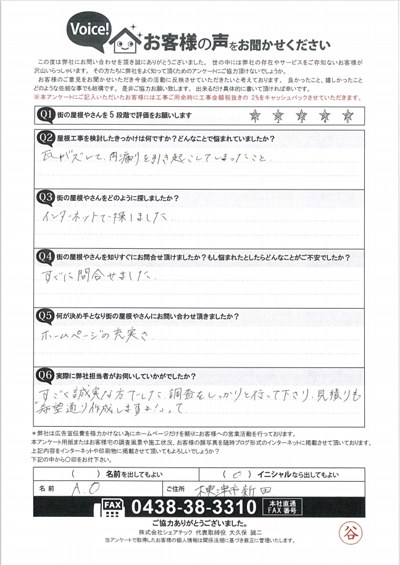 Voice!
お客様の声をお聞かせください
この度は弊社にお問い合わせを頂き誠にありがとうございました。世の中には弊社の存在やサービスをご存知ないお客様が
沢山いらっしゃいます。その方たちに弊社をよく知って頂くためのアンケートにご協力頂けないでしょうか。
お客様のご意見をお聞かせいただき今後の活動に反映させていただきたいと考えております。良かったこと、嬉しかったこと
どのような些細な事でも結構です。是非ご協力お願い致します。出来れば書いて頂ければ幸いです。
※本アンケートにご記入いただいたお客様には工事ご用命時に工事金額税抜きの 2%をキャッシュバックさせていただきます。
Q1 街の屋根やさんを5段階で評価をお願いします
Q2 屋根工事を検討したきっかけは何ですか?どんなことで悩まれていましたか?
瓦がズレて、雨漏りを引き起こしてしまったこと
Q3 街の屋根やさんをどのように探しましたか?
インターネットで探しました
Q4 街の屋根やさんを知りすぐにお問合せ頂けましたか?もし悩まれたとしたらどんなことがご不安でしたか?
すぐに問合せました
Q5 何が決め手となり街の屋根やさんにお問い合わせ頂きましたか?
ホームページの充実さ
Q6 実際に弊社担当者がお伺いしていかがでしたか?
すごく誠実な方でした。調査をしっかりと行って下さり、見積りも
希望通り作成しますよ!って
※弊社は広告宣伝費を極力かけない為にホームページだけを頼りにお客様への営業活動を行っております。
本アンケート用紙またはお客様宅の調査風景や施工状況、お客様の顔写真を随時ブログ形式でのインターネットに掲載させて頂いております。
上記内容をインターネットや印刷物に掲載させて頂いてもよろしいでしょうか?
下記の中から〇印をお付下さい。
( ) 名前を出してもよい ( 〇 ) イニシャルなら出してもよい
名前 A.O ご住所 木更津市新田
FAX 0438-38-3310 本社直通 FAX番号
ご協力ありがとうございました。
株式会社シェアテック 代表取締役 大久保 誠二
当アンケートで取得したお客様の個人情報は関係法規に基づき厳正に管理いたします。
谷